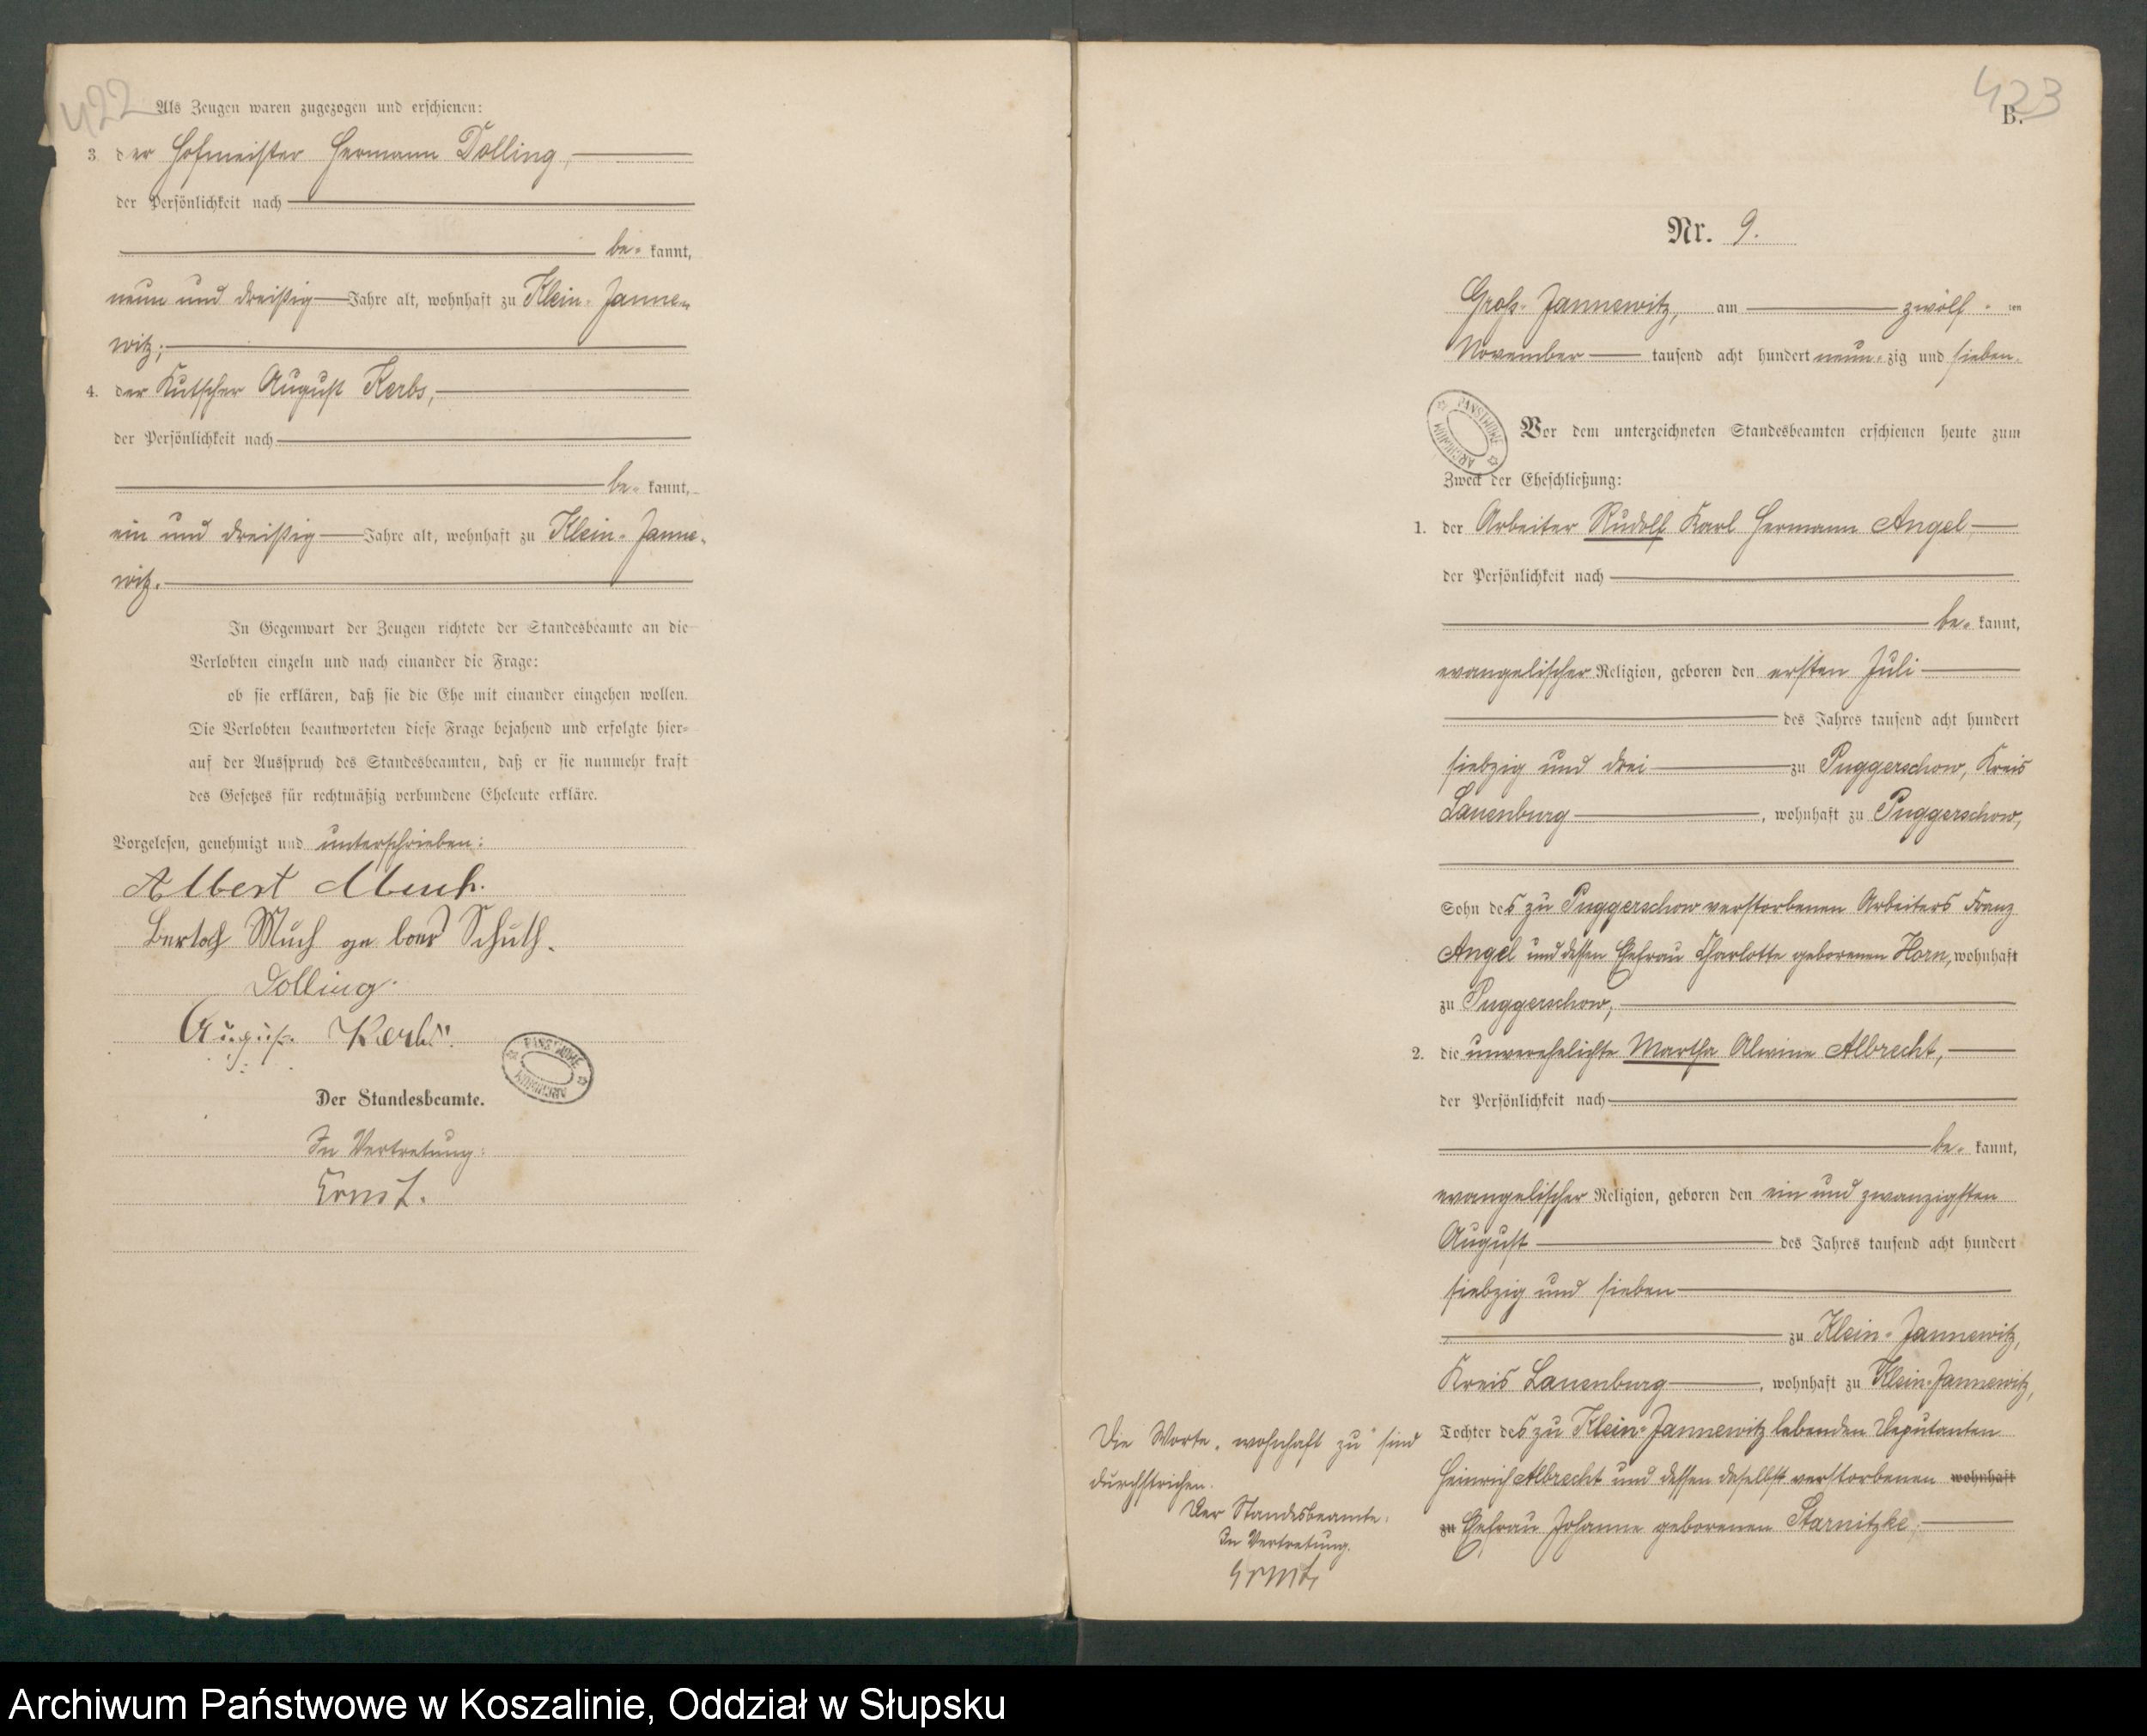 422
Als Zeugen waren zugezogen und erschienen:
3. der Hofmeister Hermann Dolling,
der Persönlichkeit nach
be- kannt,
neun und dreißig Jahre alt, wohnhaft zu Klein-Janne-
witz;
4. der Kutscher August Kerbs,
der Persönlichkeit nach
be- kannt,
ein und dreißig Jahre alt, wohnhaft zu Klein-Janne-
witz.
In Gegenwart der Zeugen richtete der Standesbeamte an die
Verlobten einzeln und nach einander die Frage:
ob sie erklären, daß sie die Ehe mit einander eingehen wollen.
Die Verlobten beantworteten diese Frage bejahend und erfolgte hier-
auf der Ausspruch des Standesbeamten, daß er sie nunmehr kraft
des Gesetzes für rechtmäßig verbundene Eheleute erkläre.
Vorgelesen, genehmigt und unterschrieben:
Albert Much.
Much Schuth.
Dolling.
August Kerbs.
PAŃSTWOWE ARCHIWUM
Der Standesbeamte.
In Vertretung:
Ernst.
423
B.
Nr. 9.
Groß-Jannewitz, am zwölf ten
November tausend acht hundert neun-zig und sieben.
PAŃSTWOWE ARCHIWUM
Vor dem unterzeichneten Standesbeamten erschienen heute zum
Zweck der Eheschließung:
1. der Arbeiter Rudolf Karl Hermann Angel,
der Persönlichkeit nach
be- kannt,
evangelischer Religion, geboren den ersten Juli
des Jahres tausend acht hundert
siebzig und drei zu Puggerschow, Kreis
Lauenburg, wohnhaft zu Puggerschow,
Sohn des zu Puggerschow verstorbenen Arbeiters Franz
Angel und dessen Ehefrau Charlotte geborenen Horn, wohnhaft
zu Puggerschow,
2. die unverehelichte Martha Alwine Albrecht,
der Persönlichkeit nach
be- kannt,
evangelischer Religion, geboren den ein und zwanzigsten
August des Jahres tausend acht hundert
siebzig und sieben
zu Klein-Jannewitz,
Kreis Lauenburg, wohnhaft zu Klein-Jannewitz,
Tochter des zu Klein-Jannewitz lebenden Deputanten
Heinrich Albrecht und dessen daselbst verstorbenen wohnhaft
zu Ehefrau Johanne geborenen Starnitzke,
Die Worte „wohnhaft zu" sind
durchstrichen.
Der Standesbeamte.
In Vertretung.
Ernst.
Archiwum Państwowe w Koszalinie, Oddział w Słupsku